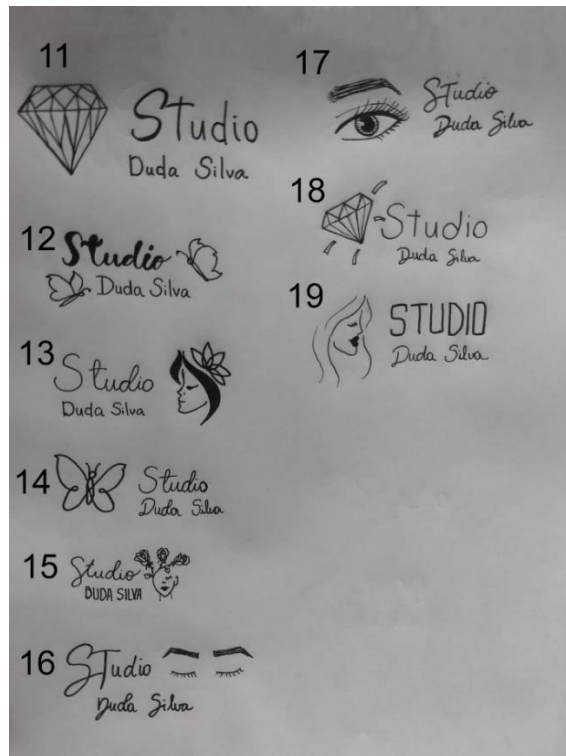 11
Studio
Duda Silva
12
Studio
Duda Silva
13
Studio
Duda Silva
14
Studio
Duda Silva
15
Studio
DUDA SILVA
16
STudio
Duda Silva
17
STudio
Duda Silva
18
Studio
Duda Silva
19
STUDIO
Duda Silva